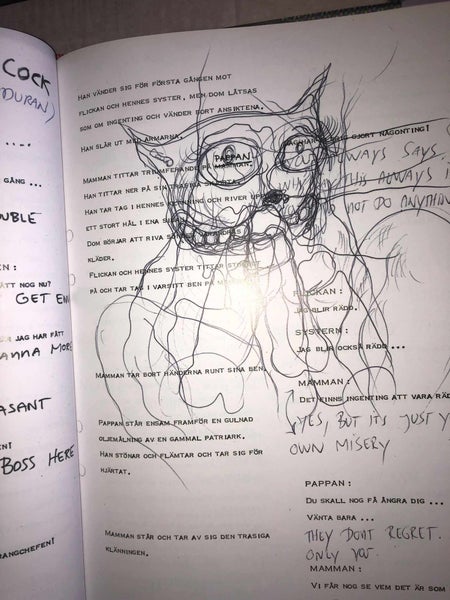 COCK
DURAN)
GÅNG ...
UBLE
EN :
ÅTT NOG NU?
GET EN
JAG HAR FÅTT
ANNA MORE
ASANT
BOSS HERE
RANGCHEFEN!
HAN VÄNDER SIG FÖR FÖRSTA GÅNGEN MOT
FLICKAN OCH HENNES SYSTER, MEN DOM LÅTSAS
SOM OM INGENTING OCH VÄNDER BORT ANSIKTENA.
HAN SLÅR UT MED ARMARNA.
PAPPAN
GJORT NÅGONTING!
MAMMAN TITTAR TRIUMFERANDE PÅ MANNEN.
ALWAYS SAYS.
HAN TITTAR NER PÅ SIN
THIS ALWAYS I
HAN TAR TAG I HENNES KLÄNNING OCH RIVER UPP
NOT DO ANYTHIN
ETT STORT HÅL I ENA
DOM BÖRJAR ATT RIVA
KLÄDER.
FLICKAN OCH HENNES SYSTER TITTAR
PÅ OCH TAR TAG I VARSITT BEN PÅ
FLICKAN :
JAG BLIR RÄDD.
SYSTERN :
JAG BLIR OCKSÅ RÄDD ...
MAMMAN TAR BORT HÄNDERNA RUNT SINA BEN.
MAMMAN :
DET FINNS INGENTING ATT VARA RÄD
YES, BUT ITS JUST Y
OWN MISERY
PAPPAN STÅR ENSAM FRAMFÖR EN GULNAD
OLJEMÅLNING AV EN GAMMAL PATRIARK.
HAN STÖNAR OCH FLÄMTAR OCH TAR SIG FÖR
HJÄRTAT.
PAPPAN :
DU SKALL NOG FÅ ÅNGRA DIG ...
VÄNTA BARA ...
THEY DONT REGRET.
ONLY YOU.
MAMMAN STÅR OCH TAR AV SIG DEN TRASIGA
KLÄNNINGEN.
MAMMAN :
VI FÅR NOG SE VEM DET ÄR SOM